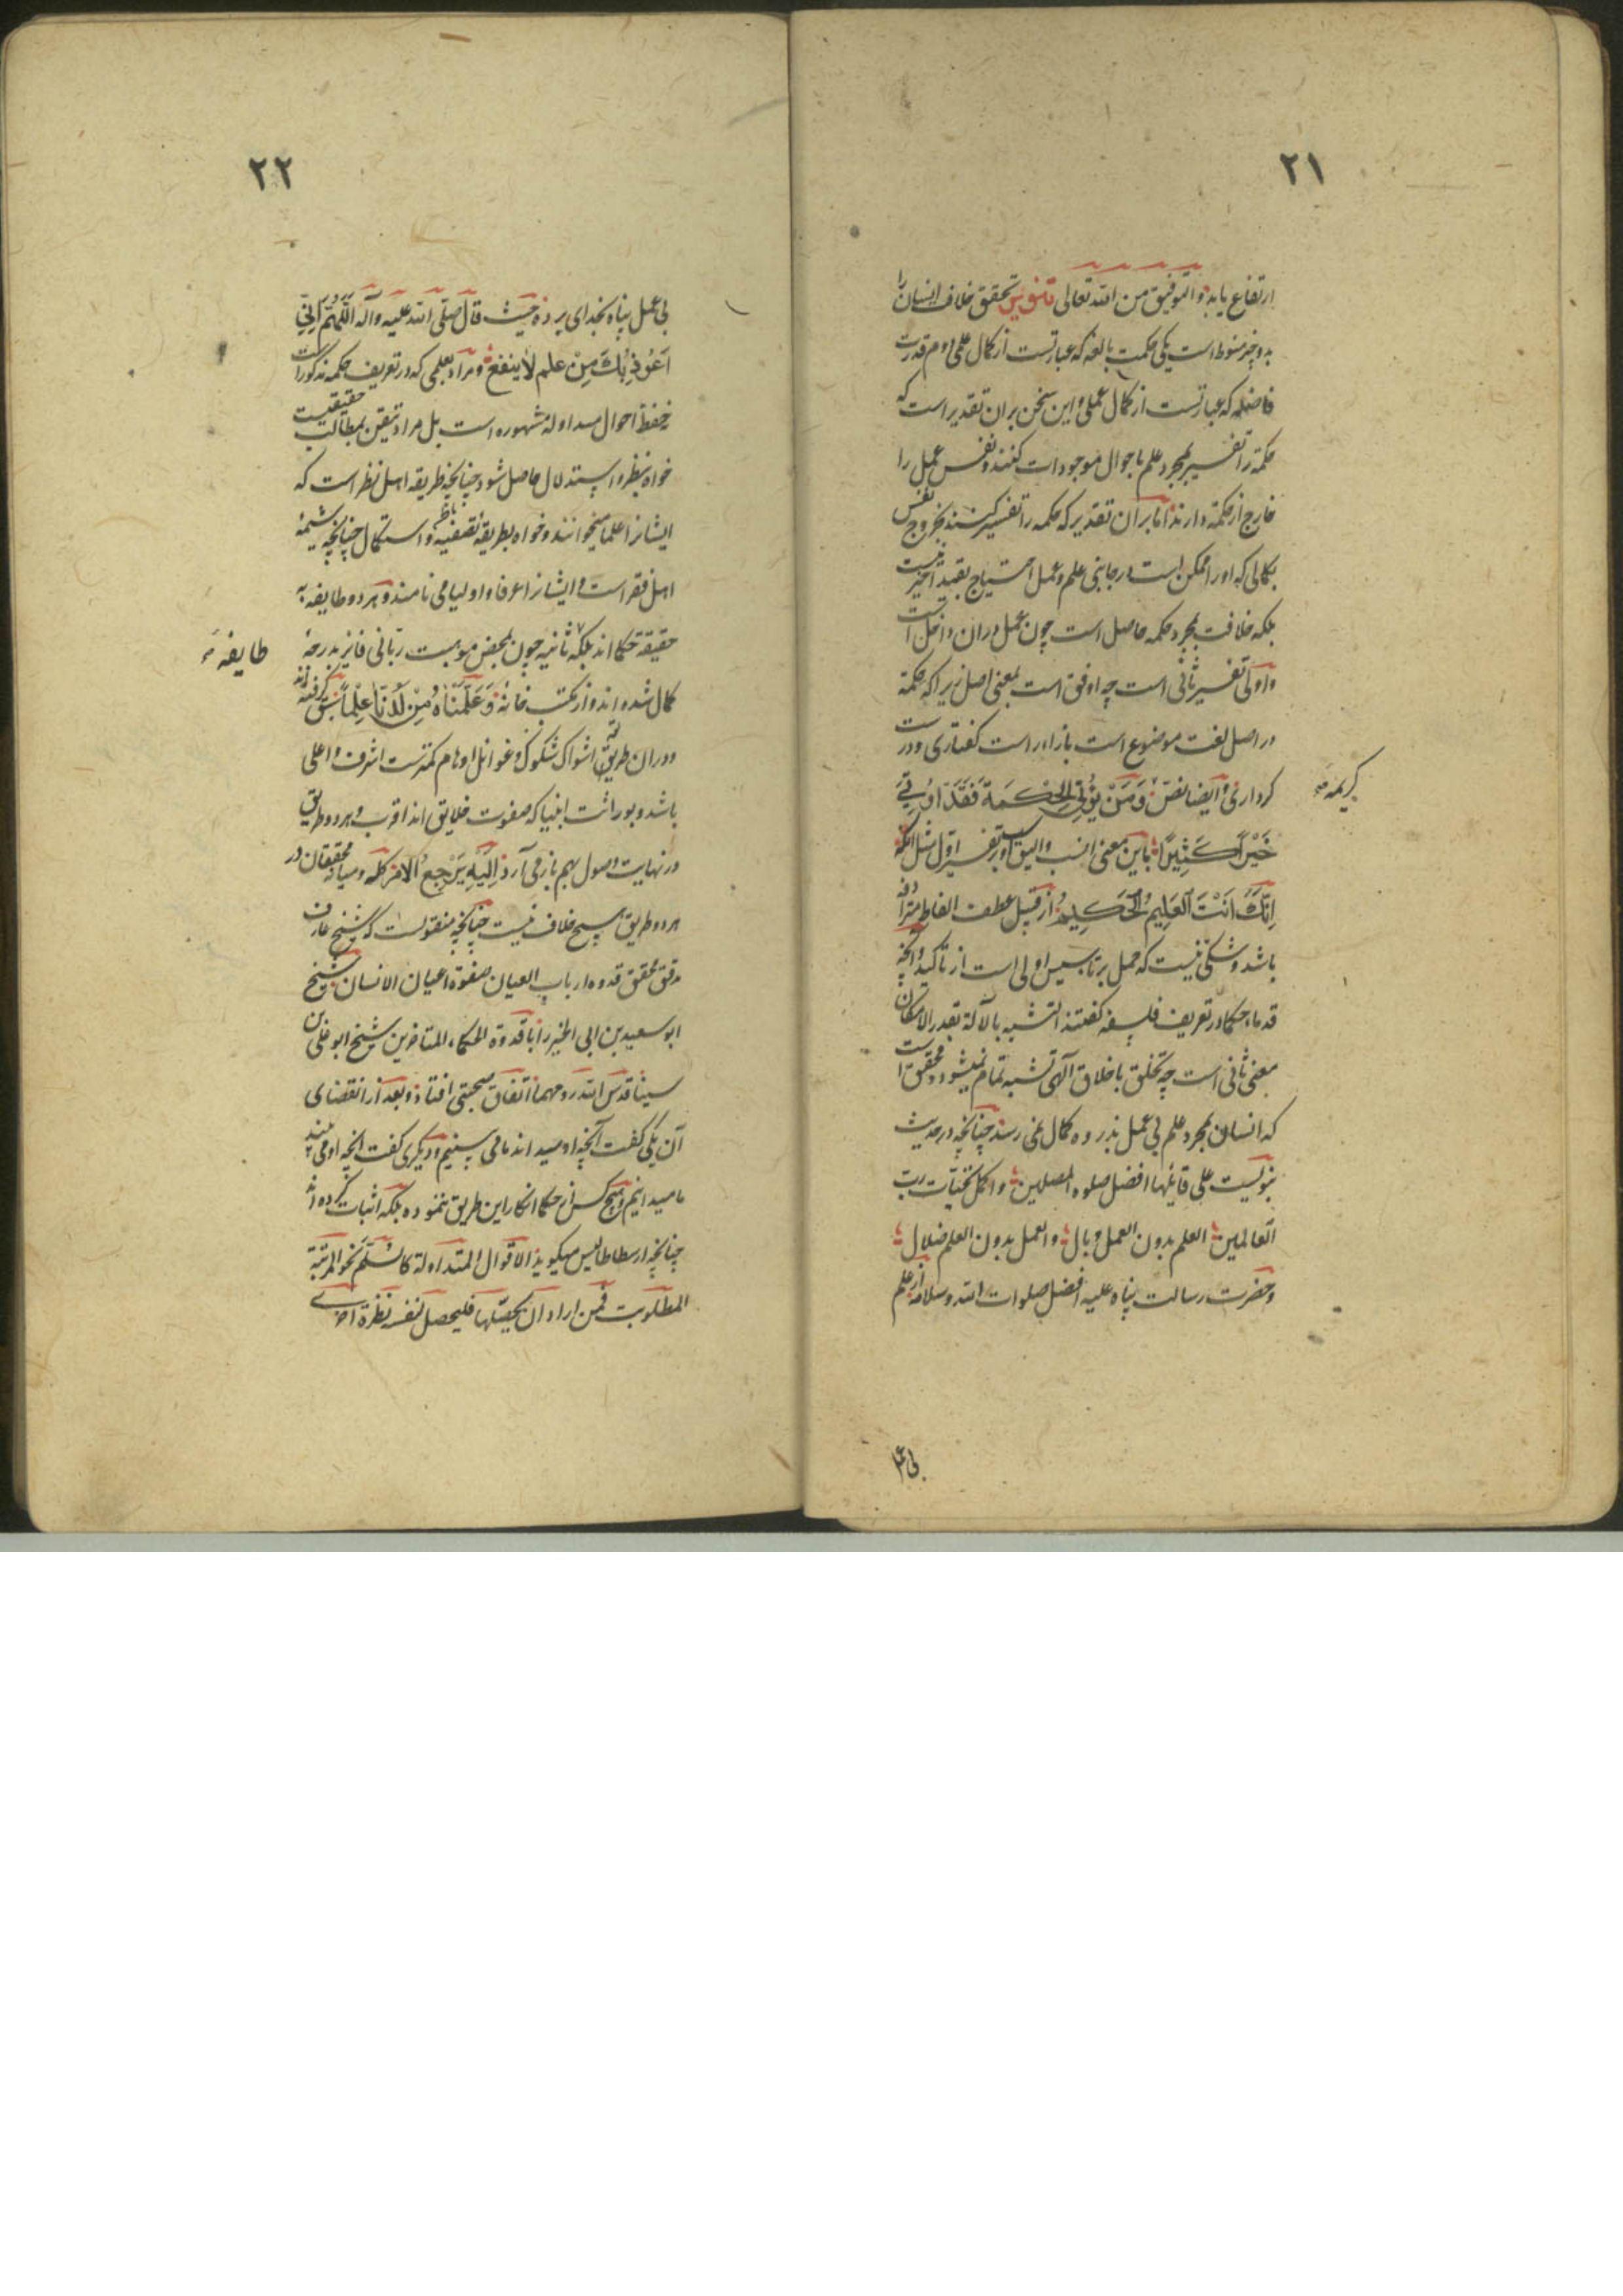 ۲۱
ارتفاع یابد و التوفیق من الله تعالی تنویر تحقق خلاف انسان را
بدو چیز منوط است یکی حکمت بالغه که عبارتست از کمال علمی دوم قدرت
فاضله که عبارتست از کمال عملی و این سخن بران تقدیر است که
حکمة را تفسیر بمجرد علم باحوال موجودات کنند و نفس عمل را
خارج از حکمة دارند اما بران تقدیر که حکمه را تفسیر کنند بخروج نفس
بکمالی که او را ممکن است در جانبی علم و عمل احتیاج بقید اخیر نیست
بلکه خلافت بمجرد حکمه حاصل است چون عمل دران داخل است
و اولی تفسیر ثانی است چه اوفق است بمعنی اصل زیرا که حکمة
در اصل لغت موضوع است بازاء راست کفتاری و درست
کرداری و ایضا نص وَمَنْ یُؤْتَ الحِکْمَةَ فَقَدْ اوُتِیَ
کریمه
خَیْراً کَثیِراً باین معنی انسب و الیق است و بر تفسیر اول مثل انکه
اِنَّکَ اَنْتَ العَلِیمُ الحَکیِمُ از قبیل عطف الفاظ مترادفه
باشد و شکی نیست که حمل بر تاسیس اولی است از تاکید و انچه
قدماء حکما در تعریف فلسفه کفتند التشبه بالآلة بقدر الامکان
معنی ثانی است چه تخلق باخلاق آلهی تشبه تمام نمیشود و محقق است
که انسان بمجرد علم بی عمل بذروه کمال نمی رسد چنانچه در حدیث
نبویست علی قائلها افضل صلوه المصلین و اکمل تحیات رب
العالمین العلم بدون العمل وبال والعمل بدون العلم ضلال
و حضرت رسالت پناه علیه افضل صلوات الله و سلامه از علم
بی عم
۲۲
بی عمل پناه بخدای برده حیث قال صلی الله علیه وآله اللّهُمَّ اِنّی
اَعُوذُ بِکَ مِنْ علم لا ینفع و مراد بعلمی که در تعریف حکمه مذکور است
نه حفظ احوال متداوله مشهوره است بل مراد تیقن بمطالب حقیقیست
خواه بنظر و استدلال حاصل شود چنانچه طریقه اهل نظر است که
ایشانرا علما میخوانند و خواه بطریقهٔ تصفیهٔ باطن و استکمال چنانچه شیمهٔ
اهل فقر است و ایشانرا عرفا و اولیا می نامند و هر دو طایفه به
حقیقة حکما اند بلکه ثانیه چون بمحض موهبت ربانی فایز بدرجهٔ
طایفه
کمال شده اند و از مکتب خانهٔ وَعَلَّمْناهُ مِنْ لَدُنّا عِلْماً سبق کرفته اند
و در ان طریق اشواک شکوک و غوائل اوهام کمترست اشرف و اعلی
باشد و بوراثت انبیا که صفوت خلایق اند اقرب و هر دو طریق
در نهایت وصول بهم باز می آرد اِلَیْهِ یَرْجِعُ الامر کله و میانه محققان در
هر دو طریق هیچ خلاف نیست چنانچه منقولست که شیخ عارف
مدقق محقق قدوه ارباب العیان صفوة اعیان الانسان شیخ
ابو سعید بن ابی الخیر را با قدوة الحکماء المتاخرین شیخ ابو علی بن
سینا قدس الله روحهما اتفاق صحبتی افتاد و بعد از انقضای
آن یکی کفت آنچه او میداند ما می بینیم و دیکری کفت انچه او می بیند
ما میدانیم و هیچ کس از حکما انکار این طریق ننموده بلکه اثبات کرده اند
چنانچه ارسطاطالیس میکوید الاقوال المتداولة کالسُلَّم نحو المرتبة
المطلوبت فمن اراد ان یحصلها فلیحصل لنفسه نظرة اخری